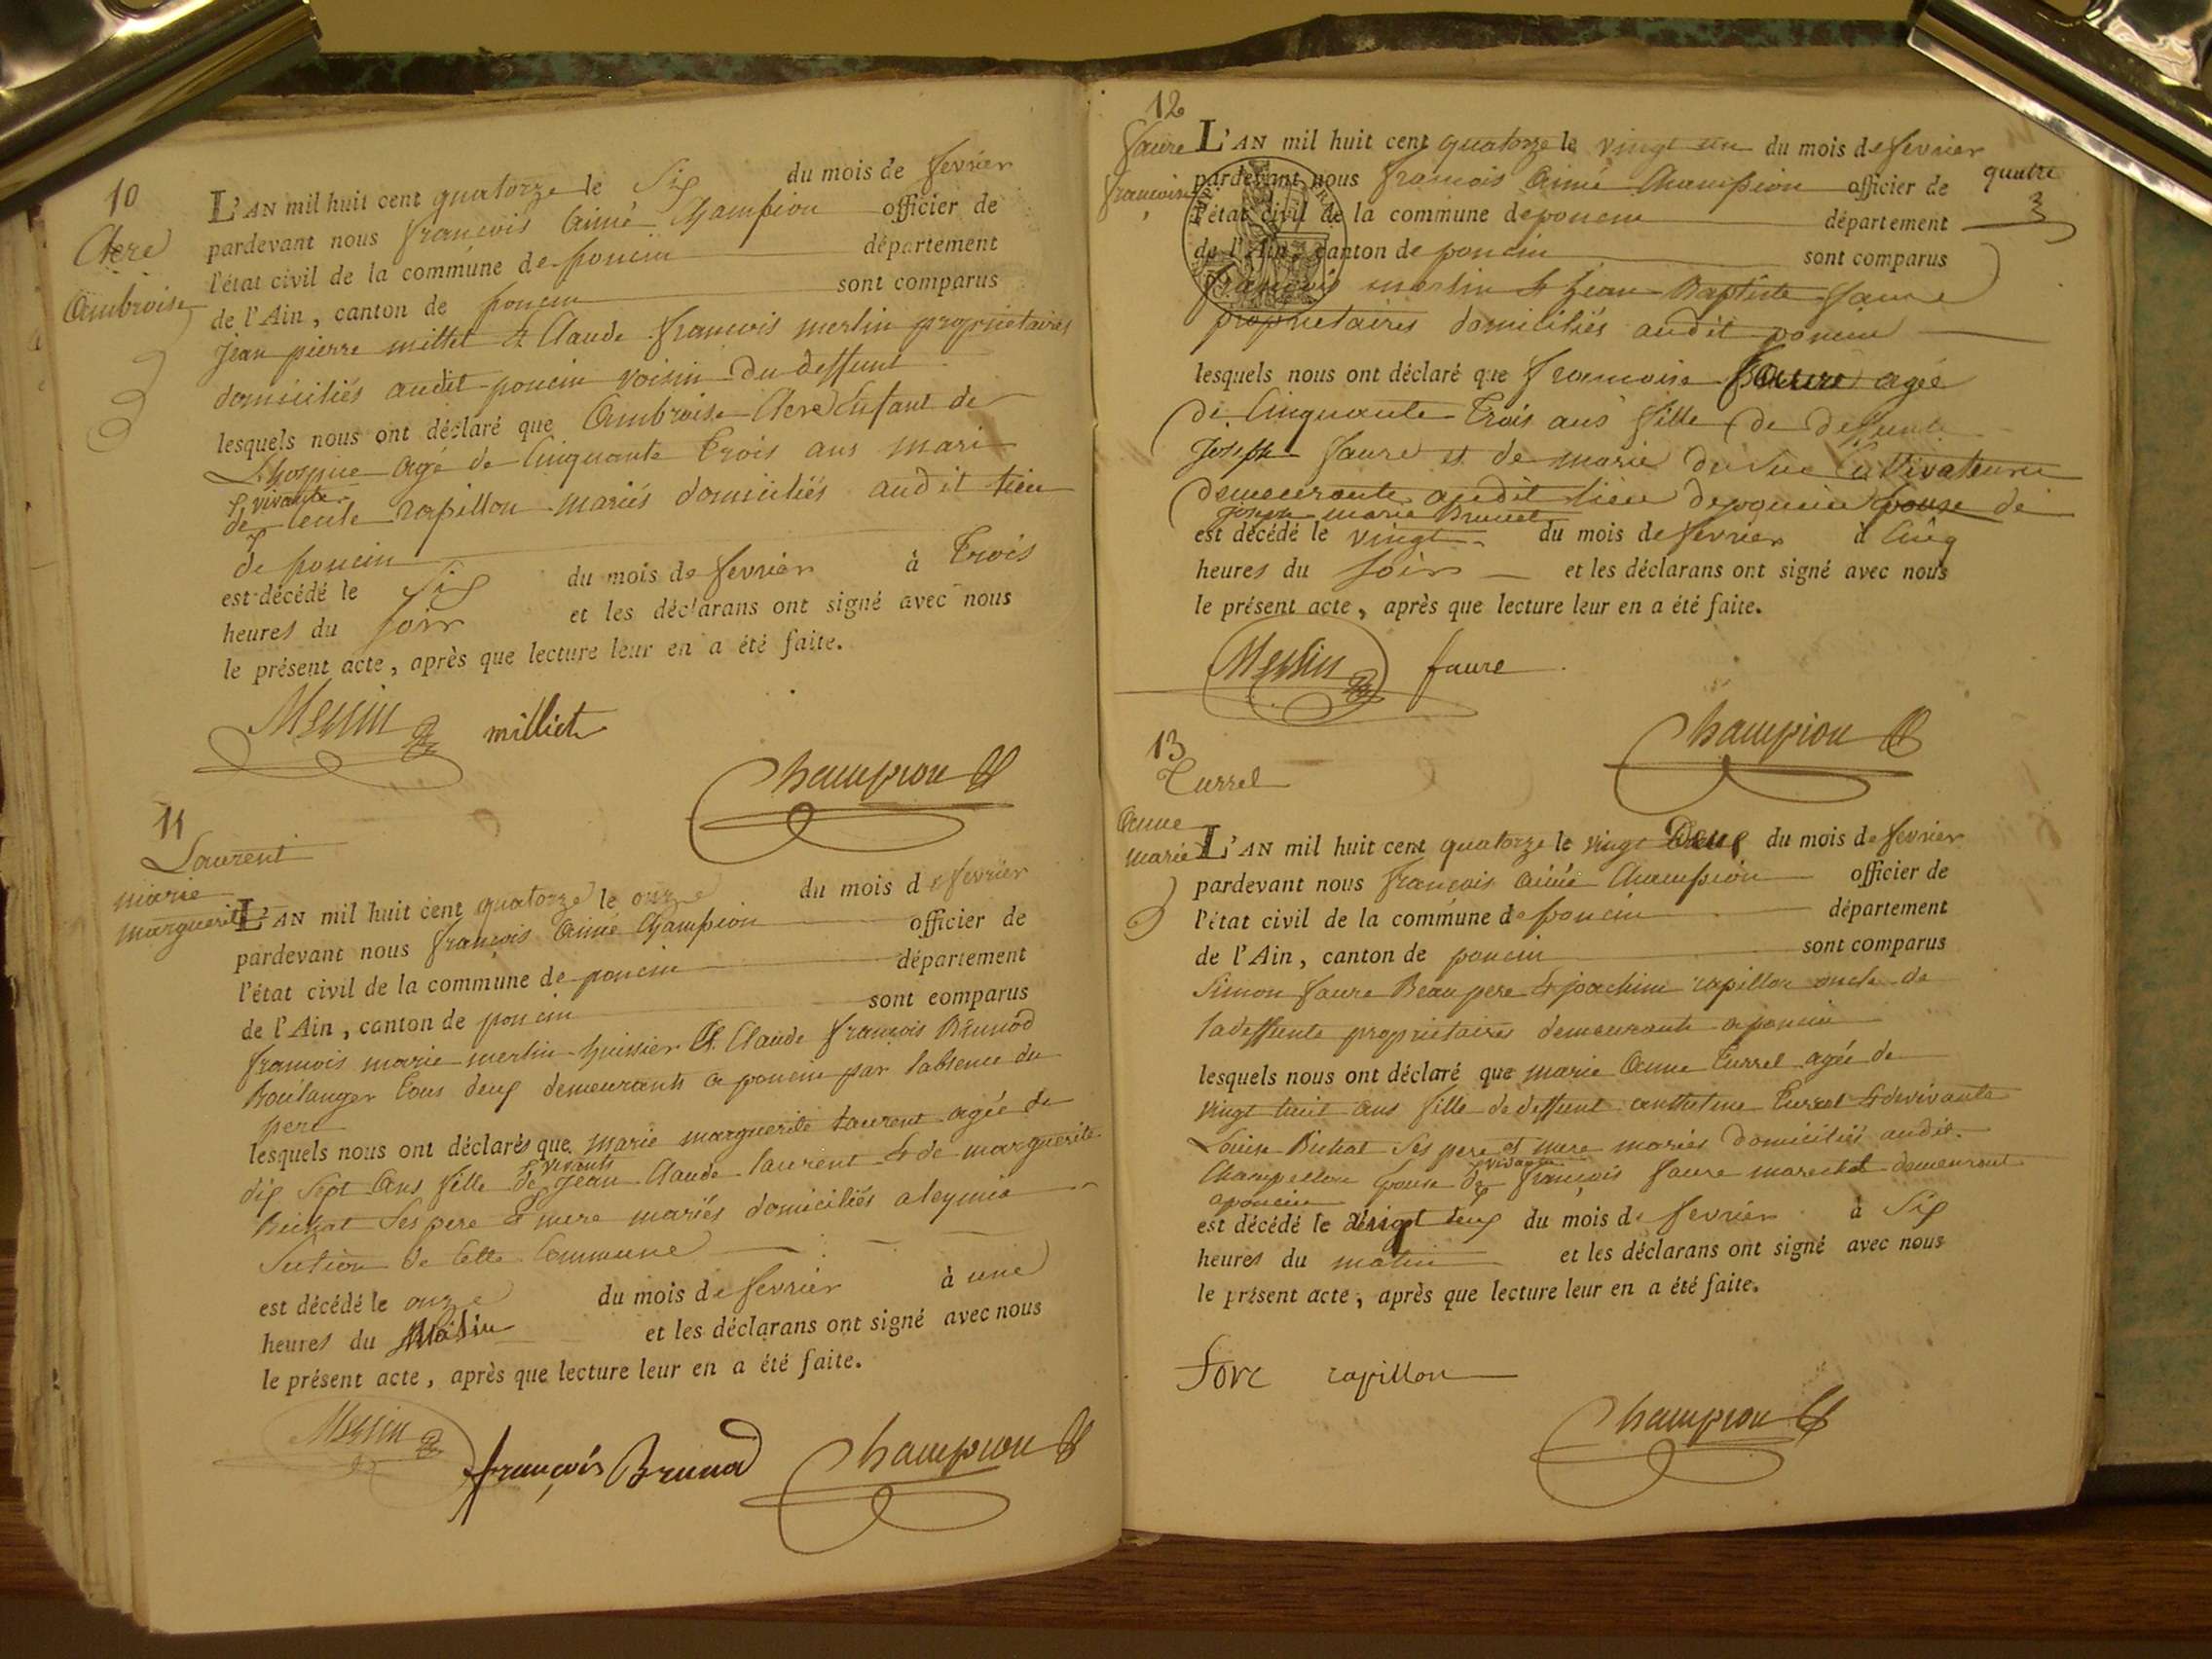 10
Clere
Ambroise
L'AN mil huit cent quatorze le Six du mois de fevrier
pardevant nous françois Aimé Champion officier de
l'état civil de la commune de poncin département
de l'Ain, canton de poncin sont comparus
Jean pierre millet & Claude françois merlin propriétaires
domiciliés audit poncin voisin du deffunt
lesquels nous ont déclaré que Ambroise Clere Enfant de
L'hospice agé de Cinquante Trois ans mari
vivante
de rapillon mariés domiciliés audit lieu
de poncin
est décédé le Six du mois de fevrier à Trois
heures du soir et les déclarans ont signé avec nous
le présent acte, après que lecture leur en a été faite.
Merlin milliet
Champion
11
Laurent
marie
marguerite
L'AN mil huit cent quatorze le onze du mois de fevrier
pardevant nous françois Aimé Champion officier de
l'état civil de la commune de poncin département
de l'Ain, canton de poncin sont comparus
francois marie merlin huissier & Claude françois Brunod
Boulanger Tous deux demeurants a poncin par labsence du
pere
lesquels nous ont déclarés que marie marguerite Laurent agée de
vivants
dix Sept Ans fille de jean Claude laurent & de marguerite
Bichat Ses pere & mere mariés domiciliés a leymia
Section de Cette Commune
est décédé le onze du mois de fevrier à une
heures du Matin et les déclarans ont signé avec nous
le présent acte, après que lecture leur en a été faite.
Merlin françois Brunod Champion
12
faure
francoise
quatre
3
L'AN mil huit cent quatorze le vingt un du mois de fevrier
pardevant nous francois Aimé Champion officier de
l'état civil de la commune de poncin département
de l'Ain, canton de poncin sont comparus
françois merlin & Jean Baptiste faure
proprietaires domiciliés audit poncin
lesquels nous ont déclaré que francoise faure agée
de Cinquante Trois ans fille de deffunt
Joseph faure et de marie du Suc Cultivateurs
demeurante audit lieu de poncin Epouse de
joseph marie Brunet
est décédé le vingt du mois de fevrier à Cinq
heures du soir et les déclarans ont signé avec nous
le présent acte, après que lecture leur en a été faite.
Merlin faure
Champion
13
Turrel
Anne
marie
L'AN mil huit cent quatorze le vingt Deux du mois de fevrier
pardevant nous françois aimé Champion officier de
l'état civil de la commune de poncin département
de l'Ain, canton de poncin sont comparus
Simon faure Beau pere & joachim rapillon oncle de
ladeffunte proprietaires demeurants a poncin
lesquels nous ont déclaré que marie Anne Turrel agée de
vingt huit ans fille de deffunt anthelme Turrel & de vivante
Louise Bichat Ses pere et mere mariés domiciliés audit
vivant
Champellon Epouse de françois faure marechal demeurant
a poncin
est décédé le vingt deux du mois de fevrier à Six
heures du matin et les déclarans ont signé avec nous
le présent acte, après que lecture leur en a été faite.
fore rapillon
Champion